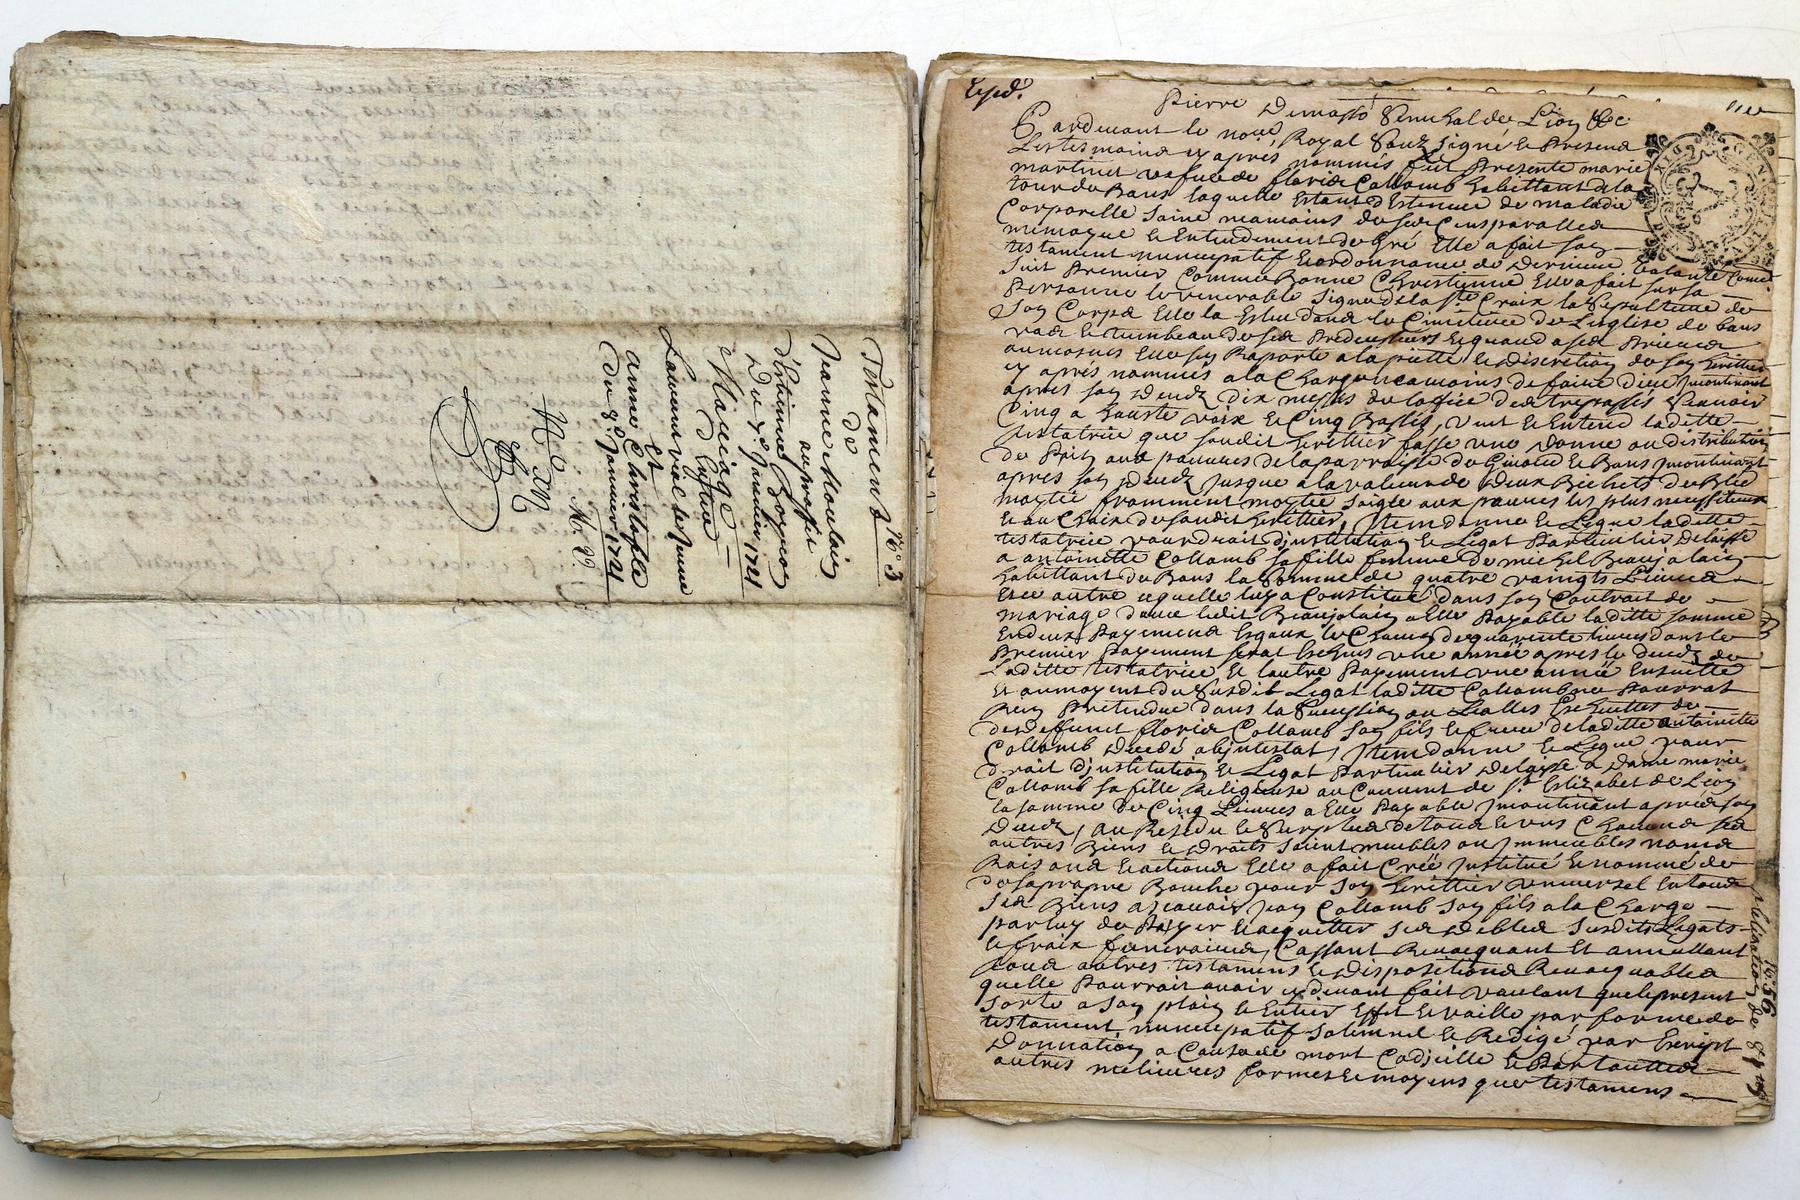 Testament
de
Jeanne Moulain
au profit
d'Estienne
Du x.e Janvier 1721
Mariage
d'entre
Laurent vial le Jeune
Et
anne Christofle
Du 8.e Janvier 1721
N.o 3
Exped.
Pierre Demasso Senechal de Lion &c
Pardevant le no.re Royal Souz Signé le Presend
Les tesmoins cy apres nommés fut Presente marie
martinet vefue de florid Collomb habittant de la
tour du Bans laquelle Estant d'Estenue de maladie
Corporelle Saine neamoins de ses Cens parolles
memoyre Et Entendement de Gré Elle a fait son
testament nuncupatif Et ordonnance de derniere volonté Comme
Suit Premier Comme Bonne Chrestienne Elle a fait sur sa
Personne le venerable Signe de la S.te Croix la Sepulture de
Son Corps Elle la Eslue dans le Cimitiere de L'esglise de bans
vas Et tumbeau de ses Predecessiers Et quand a ses Prieres
aumosnes Elle s'en Raporte a la piette Et discretion de son heritier
cy apres nommés a la Charge neamoins de faire dire jncontinant
apres son deceds dix messes de l'office des trespassés Scavoir
Cinq a haute voix Et Cinq Basses, veut Et Entend laditte
testatrice que soudit heritier fasse une donne ou distribution
de Pain aux pauvres de la parroisse de Givors Et Bans jncontinant
apres son deceds Jusque a la valeur de deux Bichets de Bled
moytié fromment moytié Soigle aux pauvres les plus necessiteux
Et au Choix de soudit heritier, Jtem donne Et Legue laditte
testatrice pour droit d'jnstitution Et Legat Particulier delaisse
a antoinette Collomb sa fille femme de michel Beaujolain
habittant du Bans la Somme de quatre vaingts Livres
Et ce outre ce quelle luy a Constitué dans son Contrait de
mariage d'avec ledit Beaujolain a Elle Payable laditte somme
En deux Payements Esgaux le Chacun de quarente livres dont le
Premier Payement serat Escheus une année apres le deceds de
Laditte testatrice Et l'autre Payement une année Ensuitte
Et au moyent du Susdit Legat laditte Collomb ne Pourrat
Rien Pretendre dans la Succession ou
de deffunct florid Collomb Son fils Et frere de laditte antoinette
Collomb decedé abjntestat, Jtem donne Et Legue pour
droit d'jnstitution Et Legat Particulier delaisse a Dame marie
Collomb sa fille Religieuse au Couvent de S.te Elizabet de Lion
la somme de Cinq Livres a Elle Payable jncontinant apres son
Deceds, au Residu Et Surplus de tous Et uns Chacuns ses
autres Biens Et droits Soient meubles ou jmmeubles noms
Raisons Et actions Elle a fait Crée jnstitué Et nommé de
de sa propre Bouche pour Son heritier universel En tous
Ses Biens a scavoir jean Collomb Son fils a la Charge
par luy de Payer Et acquitter Ses debtes Susdits Legats
Et fraix funeraires, Cassant Revocquant Et annullant
tous autres testamens Et dispositions Revocquables
quelle Pourroit avoir cy devant fait voulant que le present
Sorte a Son plain Et Entier Effet Et vaille par forme de
testament nuncupatif Solemnel Et Redigé par Escript
Donnation a Cause de mort Codjcille Et Par toutes
autres melieures formes Et moyens que testamens
N.o 56